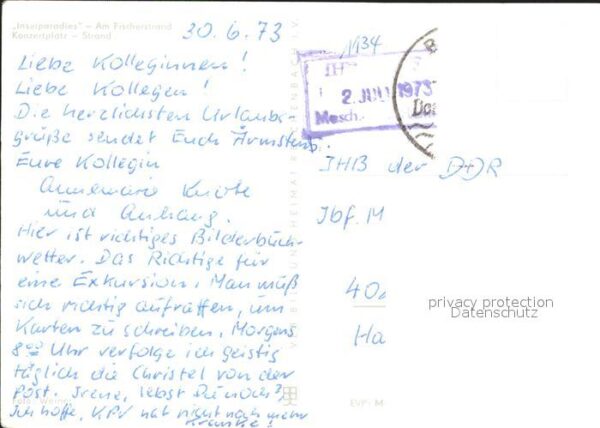 „Inselparadies" – Am Fischerstrand
Konzertplatz – Strand
30.6.73
Liebe Kolleginnen!
Liebe Kollegen!
Die herzlichsten Urlaubs-
grüße sendet Euch Ärmsten
Eure Kollegin
Annemarie Knote
und Anhang.
Hier ist richtiges Bilderbuch-
wetter. Das Richtige für
eine Exkursion. Man muß
sich richtig aufraffen, um
Karten zu schreiben. Morgens
8 00 Uhr verfolge ich geistig
täglich die Christel von der
Post. Irene, lebst Du noch?
Ich hoffe, KPV hat nicht noch mehr
Kranke!
Foto: Werner
VEB BILD UND HEIMAT REICHENBACH I. V.
2. JULI 1973
Masch.
IHB der DDR
Jbf. M
40
Ha
privacy protection
Datenschutz